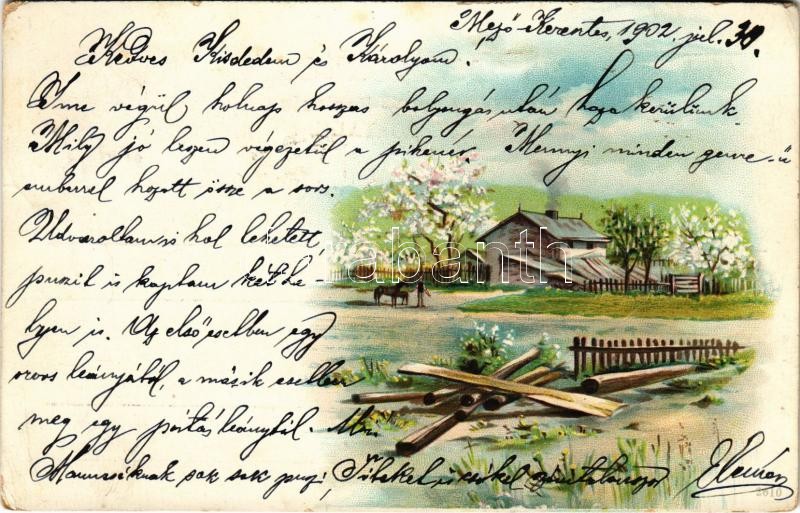 Mező-Kerentes, 1902. júl. 30.
Kedves Kisdedem és Károlyom.
Íme végül holnap hosszas bolyongás után haza kerülünk
Mily jó leszen végezetül a pihenés. Mennyi minden
emberrel hozott össze a sors.
Udvaroltam is hol lehetett,
puszit is kaptam két he-
lyen is. Az első esetben egy
orvos leányától, a másik esetben
meg egy postás leánytól.
sok sok puszi, Titeket is csókol
abanth
2610